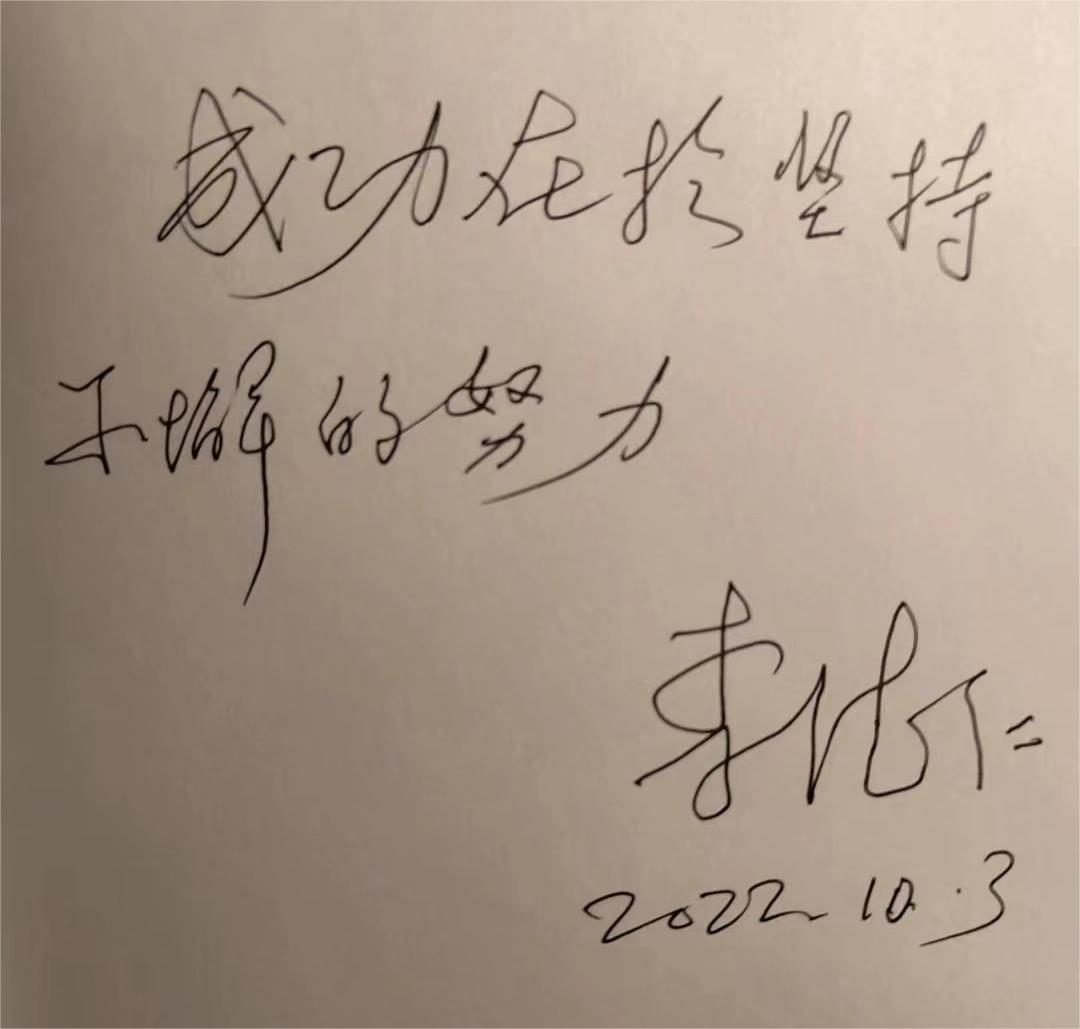 成功在於坚持
不懈的努力
李化仁
2022.10.3